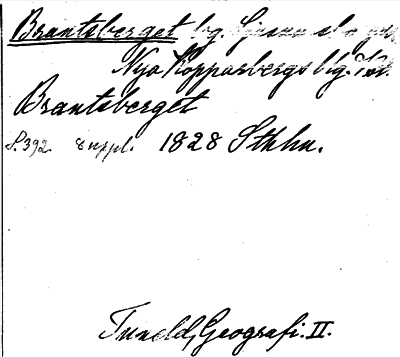 Brantsberget bg. Ljusna
Nya Kopparbergs blg.
Brantsberget
s. 392. suppl. 1828 Sthlm.
Tuneld, Geografi. II.